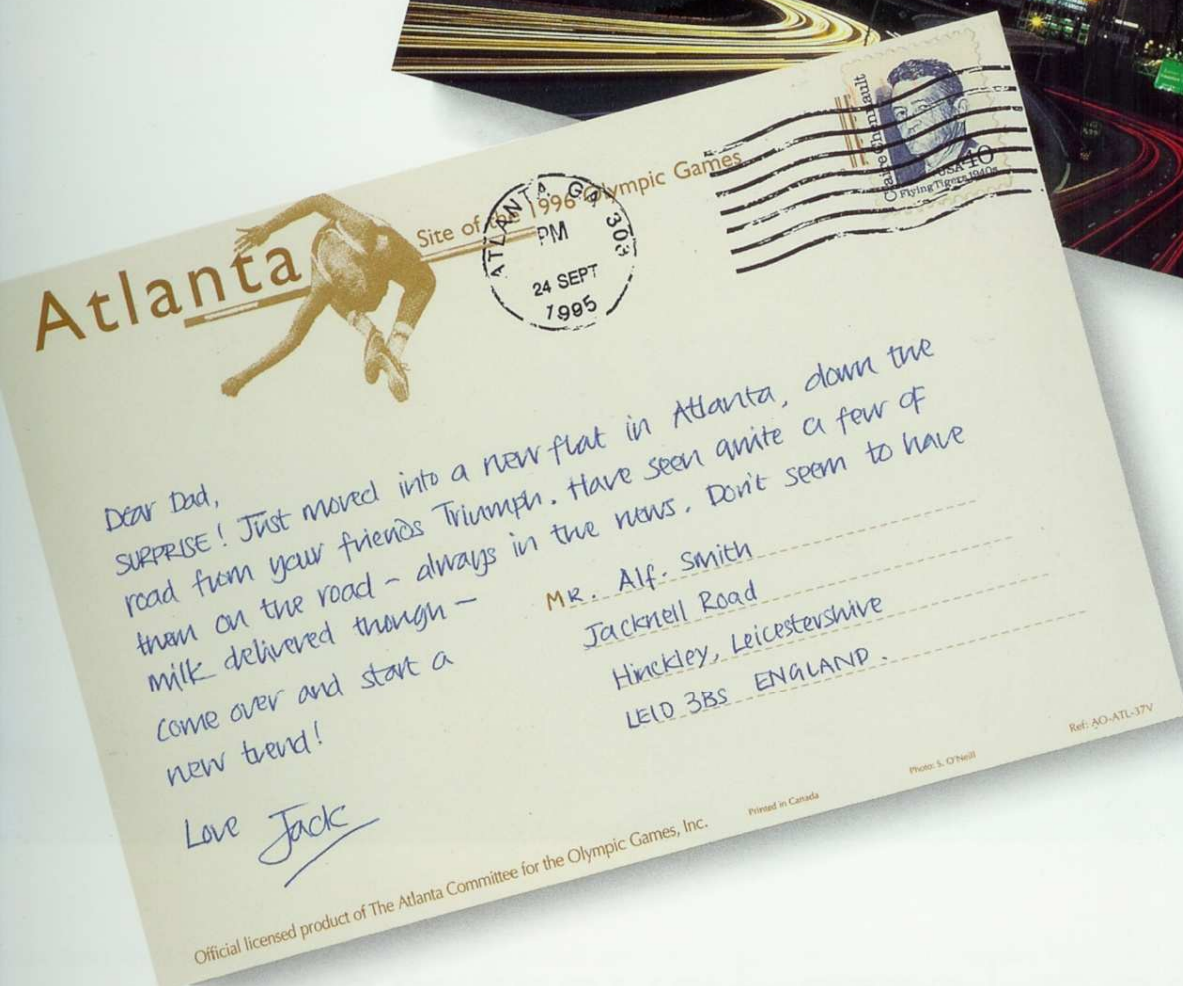 Claire Chennault
USA 40
Flying Tigers, 1940s
Atlanta
Site of the 1996 Olympic Games
ATLANTA GA 303
PM
24 SEPT
1995
Dear Dad,
SURPRISE! Just moved into a new flat in Atlanta, down the
road from your friends Triumph. Have seen quite a few of
them on the road – always in the news. Don't seem to have
milk delivered though –
come over and start a
new trend!
Love Jack
MR. Alf. Smith
Jacknell Road
Hinckley, Leicestershire
LE10 3BS ENGLAND.
Official licensed product of The Atlanta Committee for the Olympic Games, Inc.
Printed in Canada
Photo: S. O'Neill
Ref: AO-ATL-37V